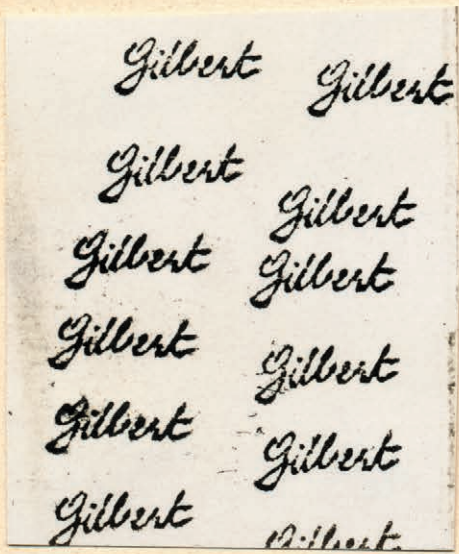 Gilbert
Gilbert
Gilbert
Gilbert
Gilbert
Gilbert
Gilbert
Gilbert
Gilbert
Gilbert
Gilbert
Gilbert